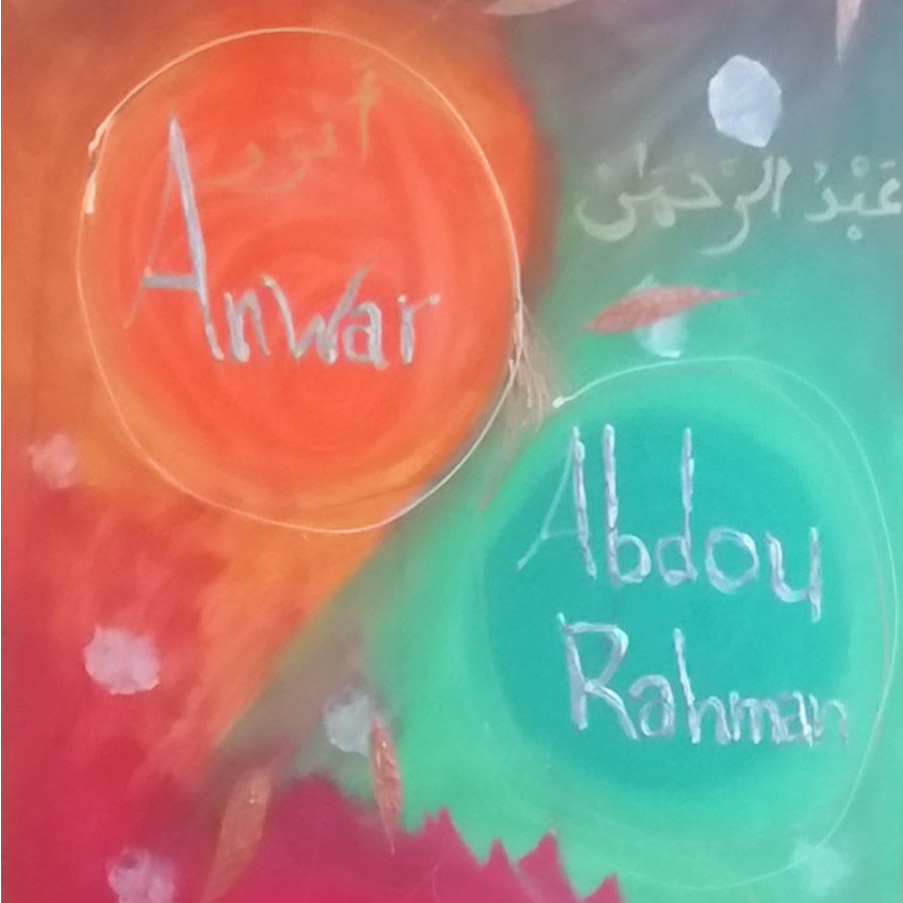 أنور
Anwar
عَبْدُ الرَّحمَٰن
Abdou
Rahman